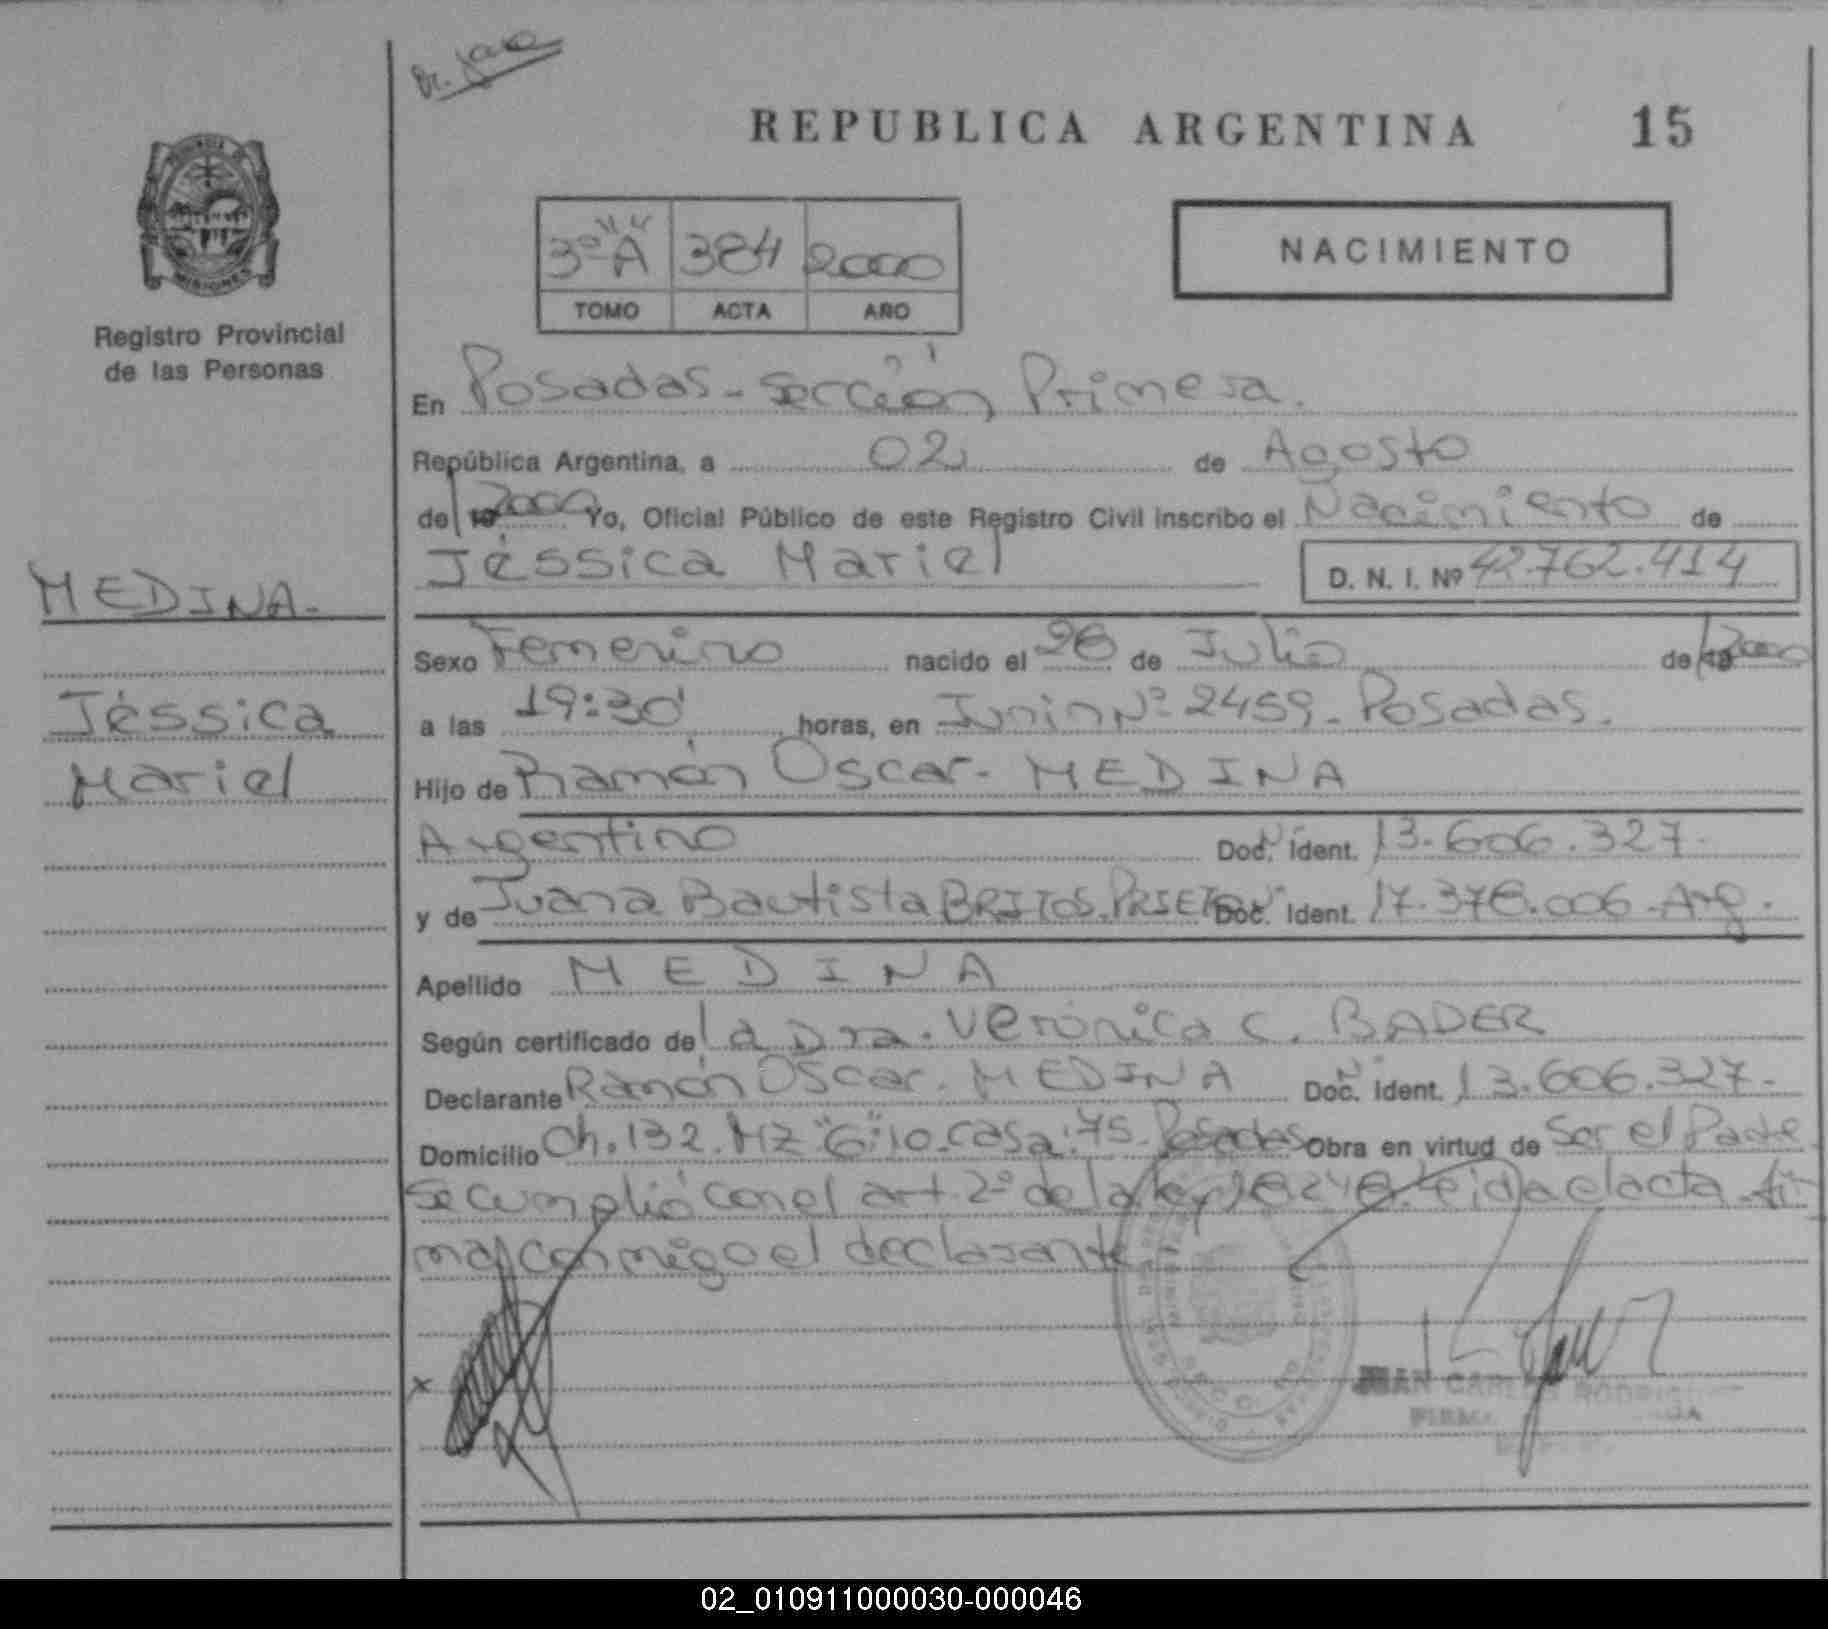 REPUBLICA ARGENTINA 15
3º "A" 384 2000
TOMO ACTA AÑO
NACIMIENTO
PROVINCIA
MISIONES
Registro Provincial
de las Personas
MEDINA.-
Jéssica
Mariel
En Posadas - Sección Primera.
República Argentina, a 02 de Agosto
de 19 2000 Yo, Oficial Público de este Registro Civil inscribo el Nacimiento de
Jéssica Mariel D. N. I. Nº 42.762.414
Sexo Femenino nacido el 28 de Julio de 19 2000
a las 19:30 horas, en Junin Nº 2459 - Posadas.
Hijo de Ramón Oscar - MEDINA
Argentino Doc. Ident. 13.606.327.
y de Juana Bautista BRITOS PRIETO Doc. Ident. 17.378.006 - Arg.
Apellido MEDINA
Según certificado de la Dra. Verónica C. BADER
Declarante Ramón Oscar. MEDINA Doc. Ident. 13.606.327-
Domicilio Ch. 132. MZ "G" 10 - casa: 75 - Posadas Obra en virtud de Ser el Padre
Se cumplió con el art. 2º de la ley 18248. Leida el acta fir
ma conmigo el declarante.-
x
JUAN CARLOS
02_010911000030-000046